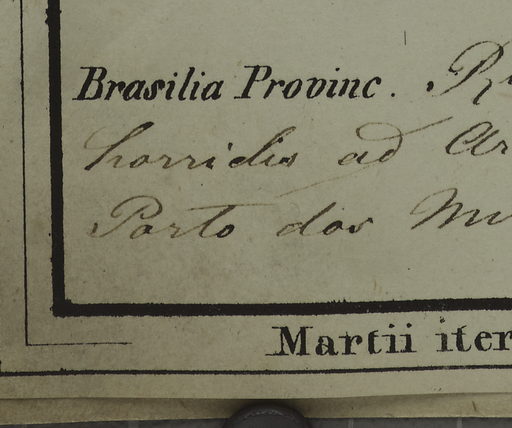 Brasilia Provinc.
horridis ad
Porto dos
Martii iter